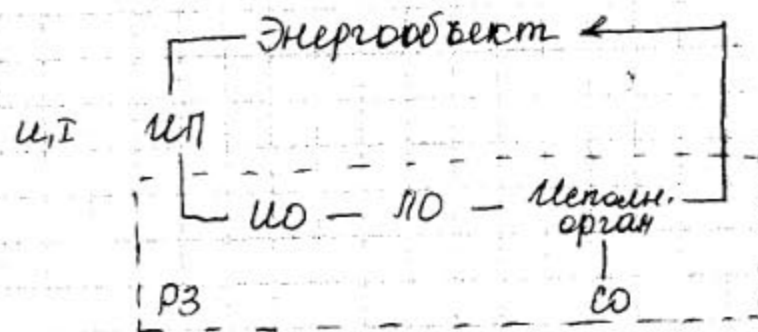 Энергообъект
u, I ИП
ИО — ЛО — Исполн.
орган
РЗ СО